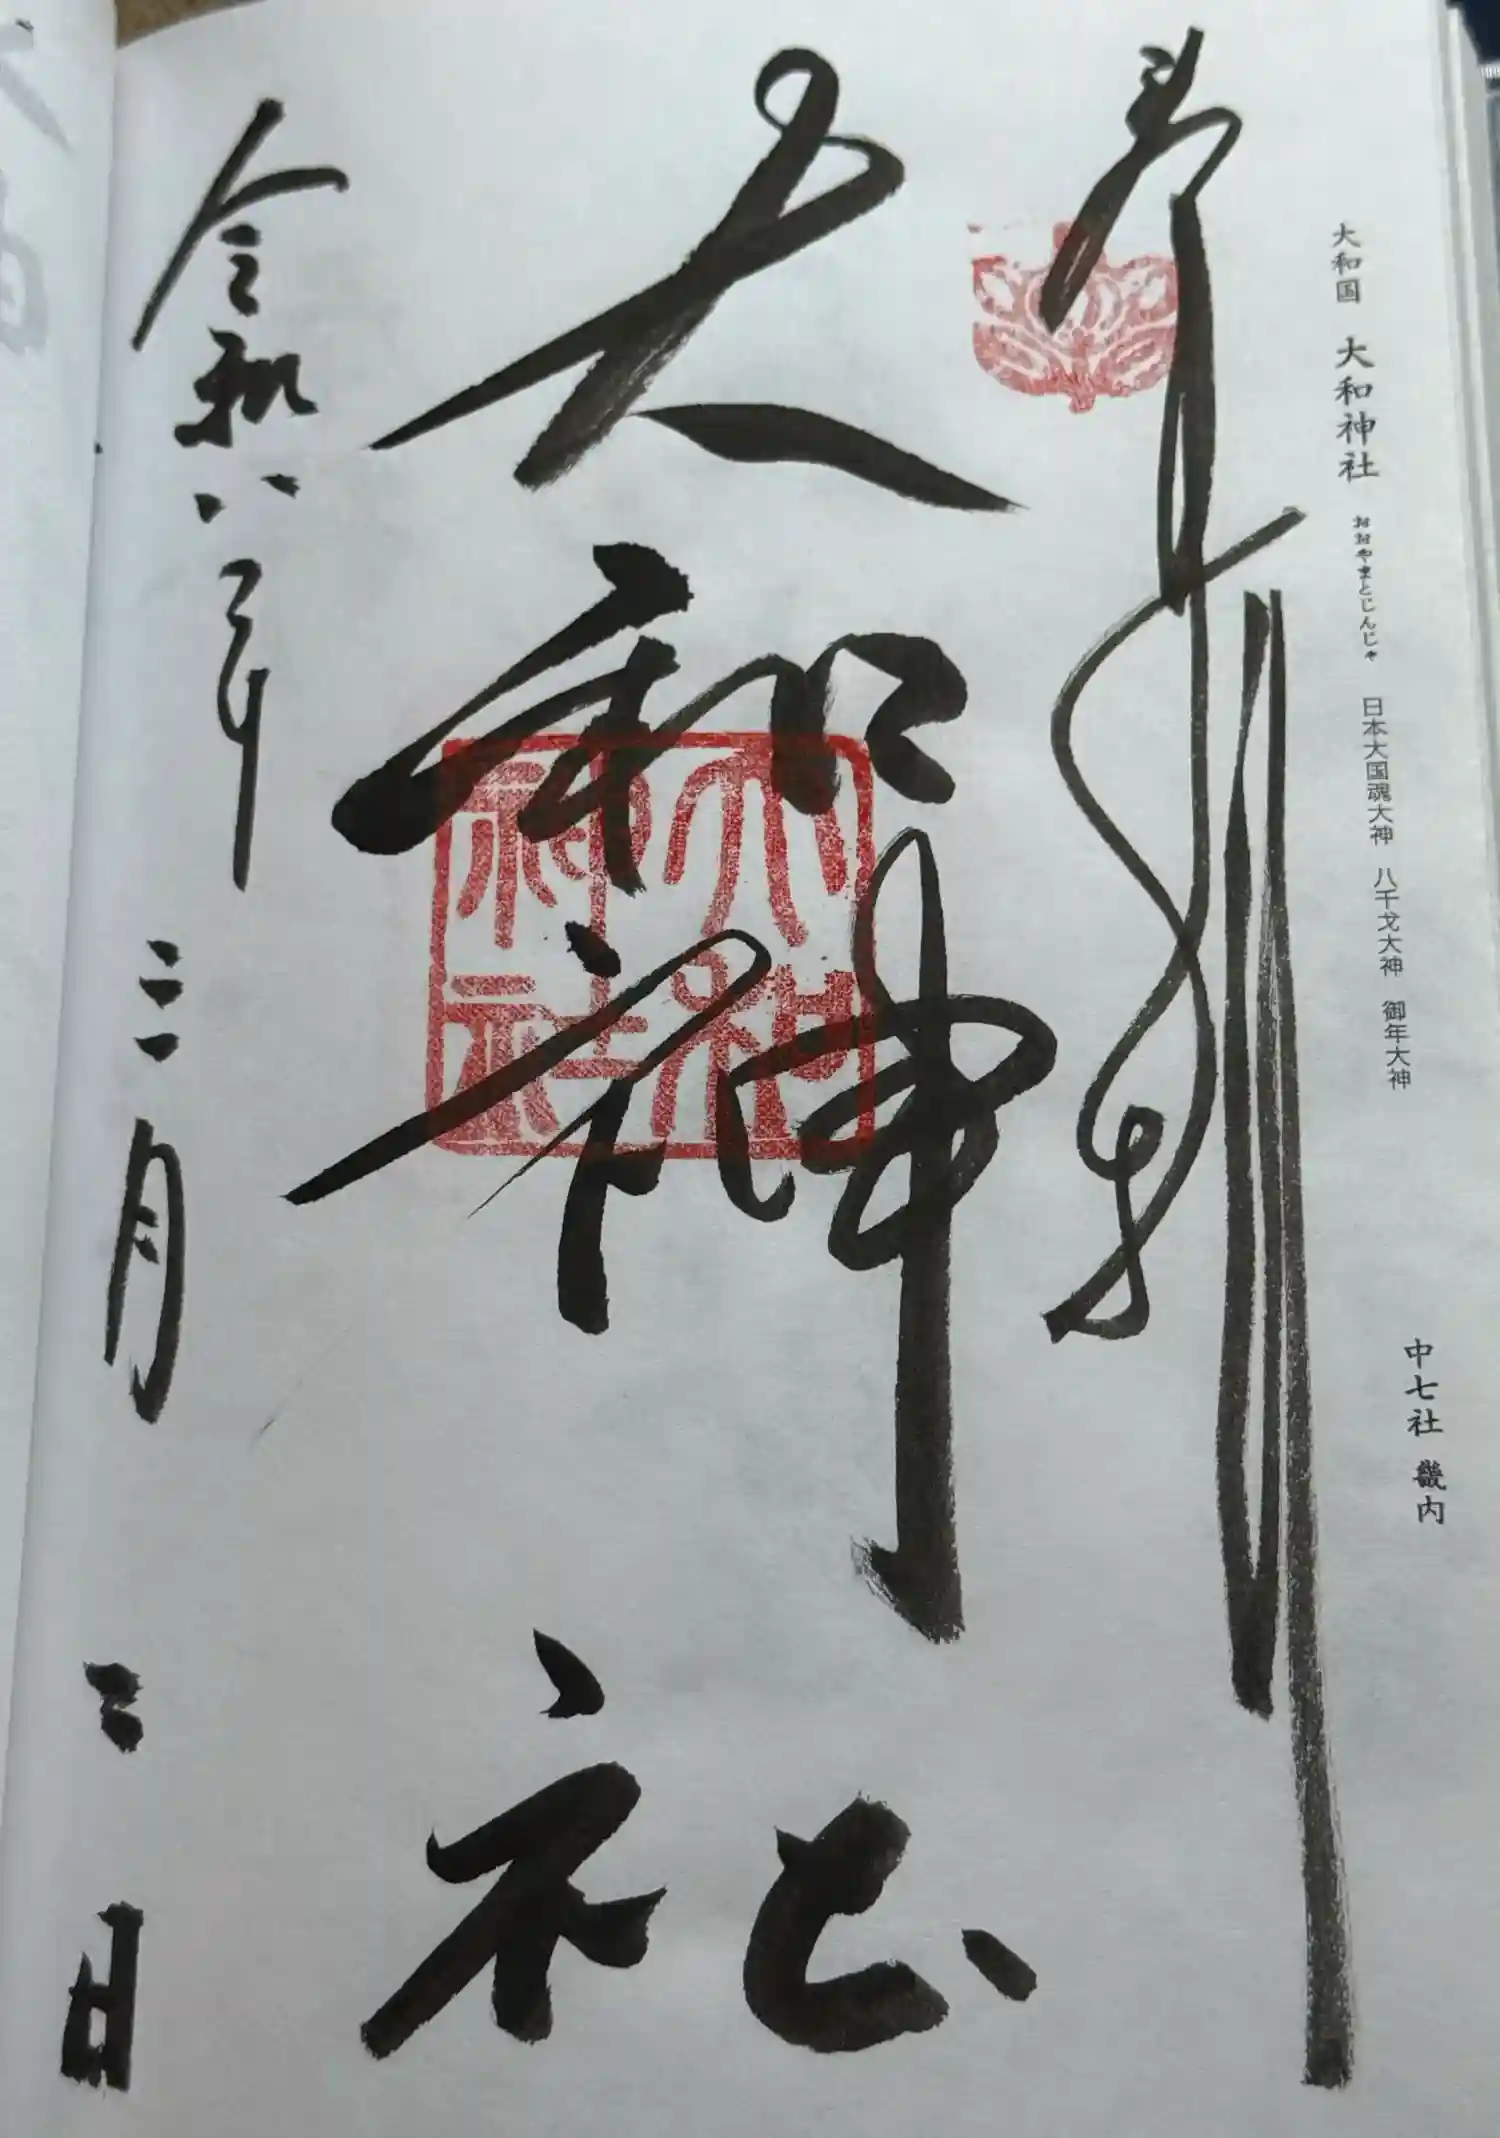 大和国 大和神社 おおやまとじんじゃ 日本大国魂大神 八千戈大神 御年大神
中七社 畿内
奉拝
大和神社
大和神社
令和八年 三月 三日